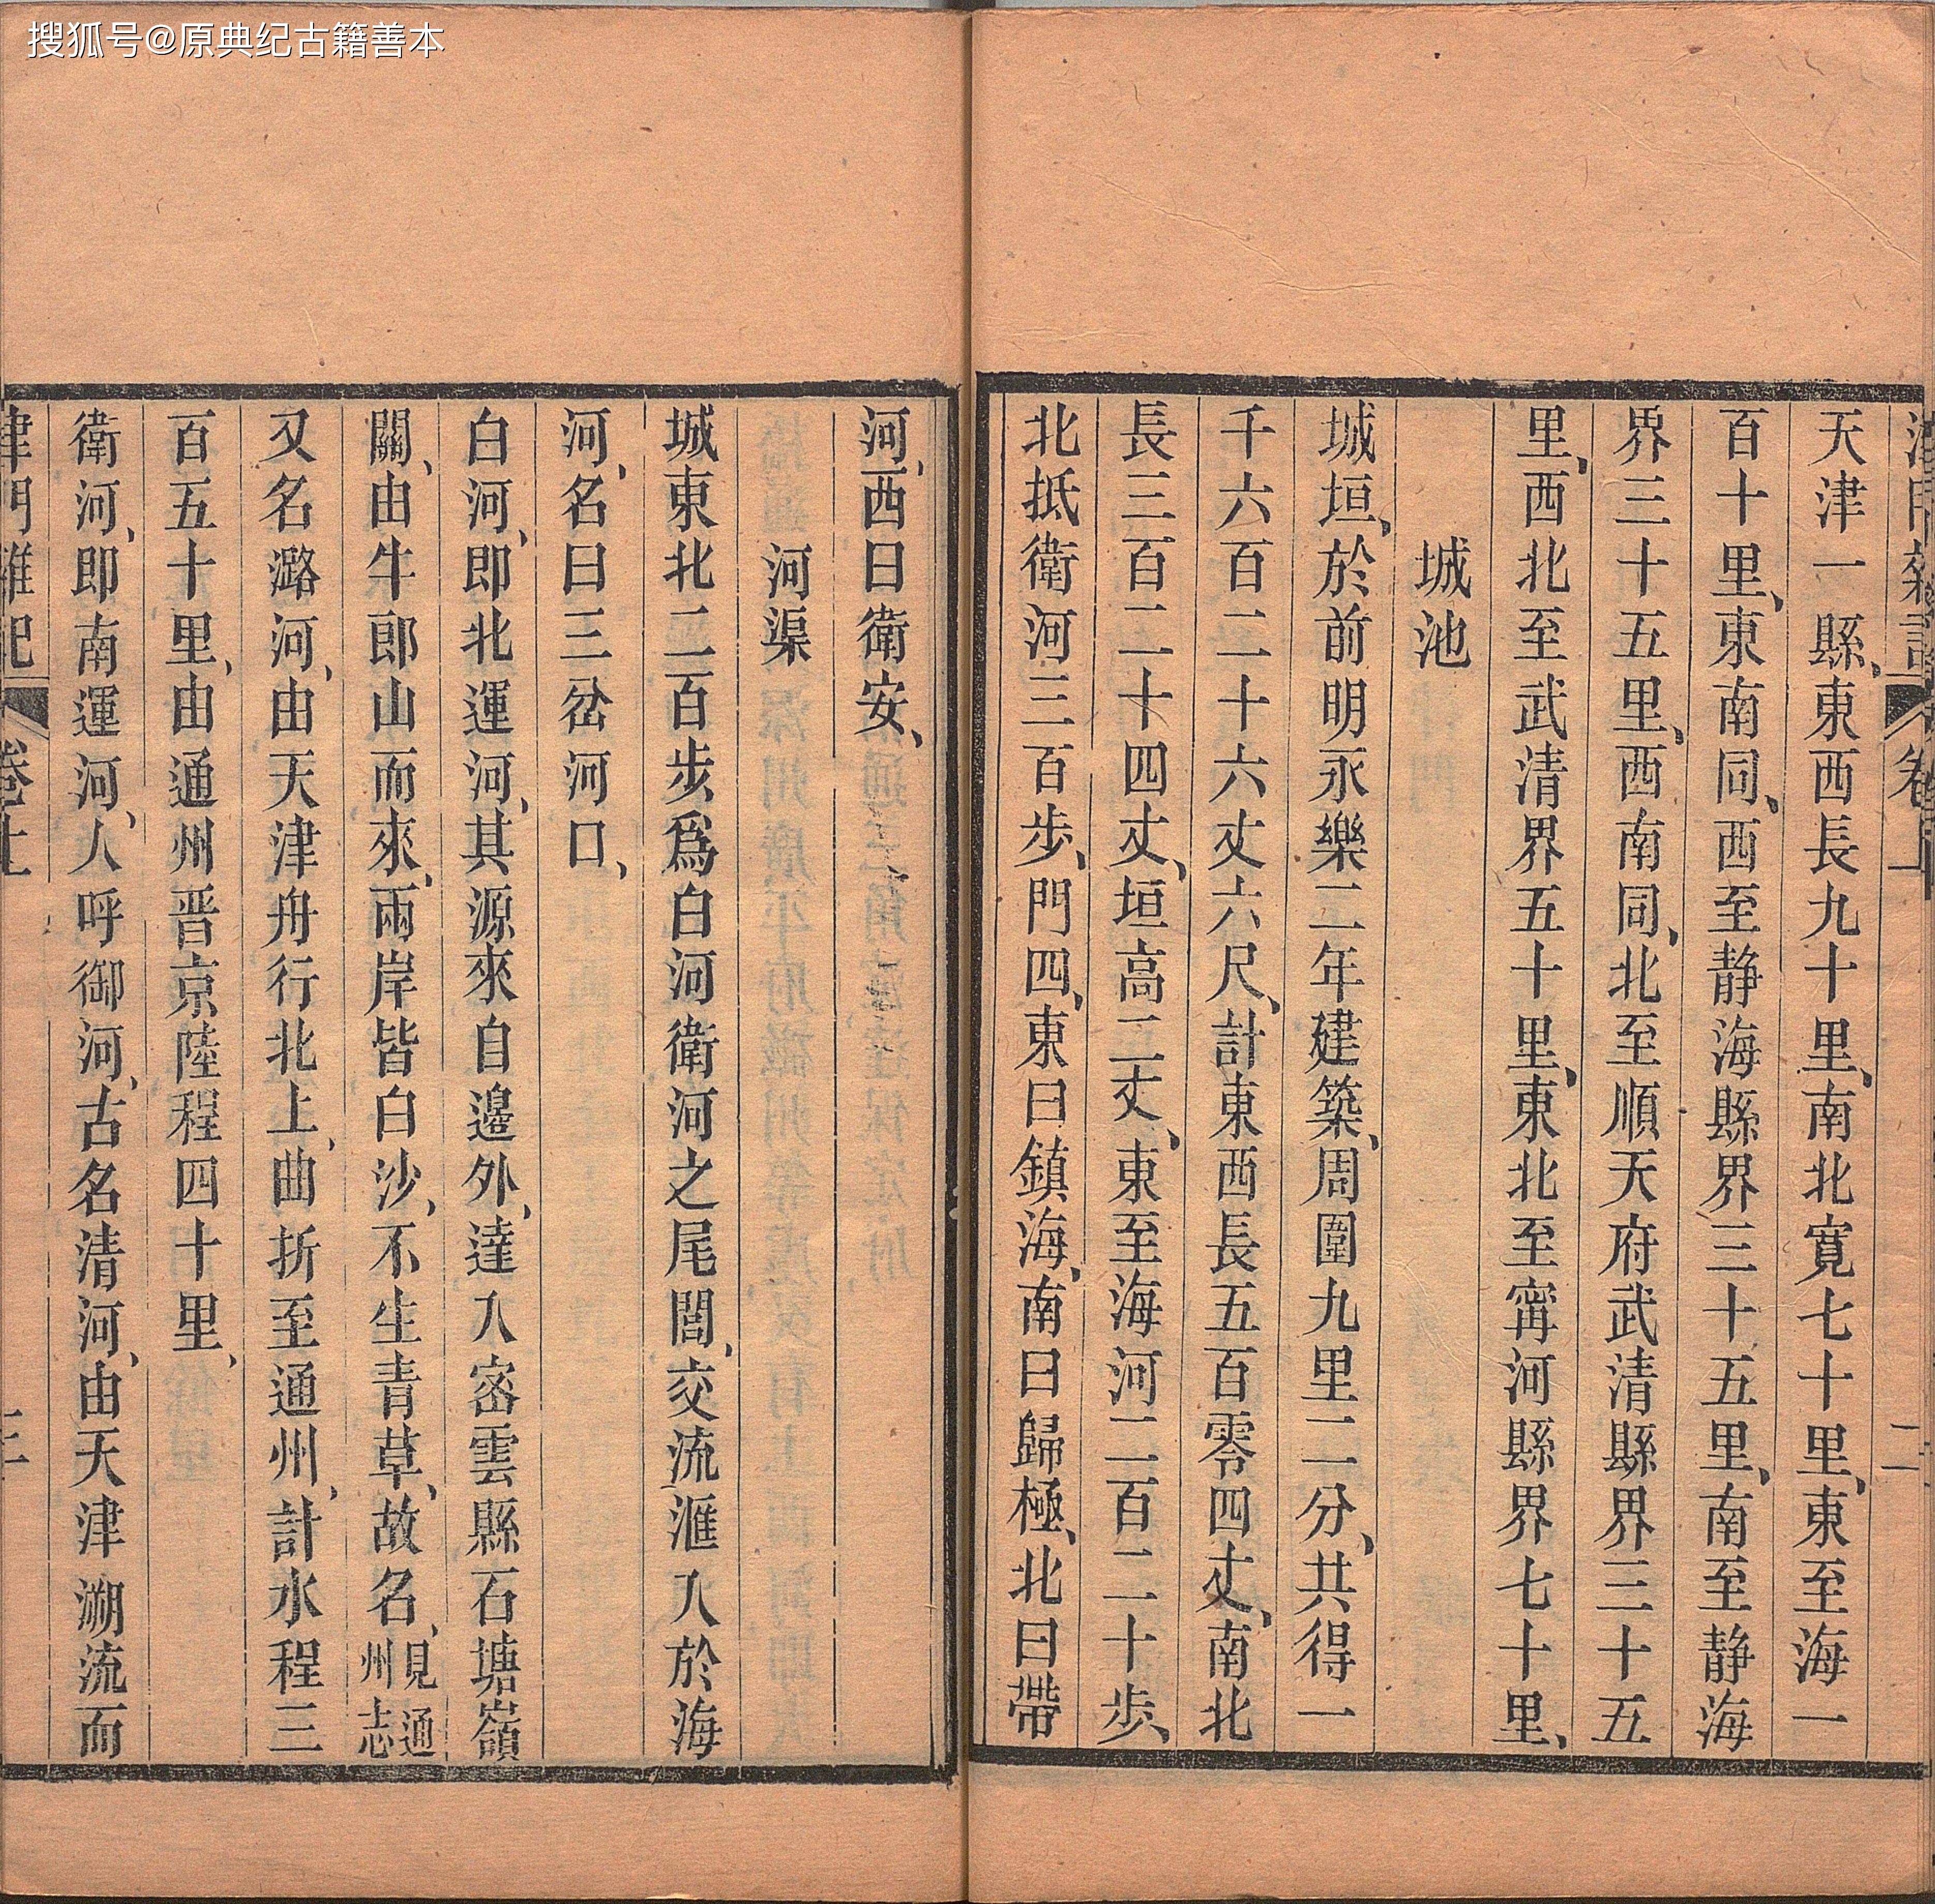 搜狐号@原典纪古籍善本
津門雜記
卷上
二
天津一縣、東西長九十里、南北寬七十里、東至海一
百十里、東南同、西至静海縣界三十五里、南至静海
界三十五里、西南同、北至順天府武清縣界三十五
里、西北至武清界五十里、東北至甯河縣界七十里、
城池
城垣、於前明永樂二年建築、周圍九里二分、共得一
千六百二十六丈六尺、計東西長五百零四丈、南北
長三百二十四丈、垣高二丈、東至海河二百二十步、
北抵衛河三百步、門四、東曰鎮海、南曰歸極、北曰帶
河、西曰衛安、
河渠
城東北二百步爲白河衛河之尾閭、交流滙入於海
河、名曰三岔河口、
白河、即北運河、其源來自邊外、達入密雲縣石塘嶺
關、由牛郎山而來、兩岸皆白沙、不生青草、故名、見通州志
又名潞河、由天津舟行北上、曲折至通州、計水程三
百五十里、由通州晋京陸程四十里、
衛河、即南運河、人呼御河、古名清河、由天津溯流而
津門雜記
卷上
三